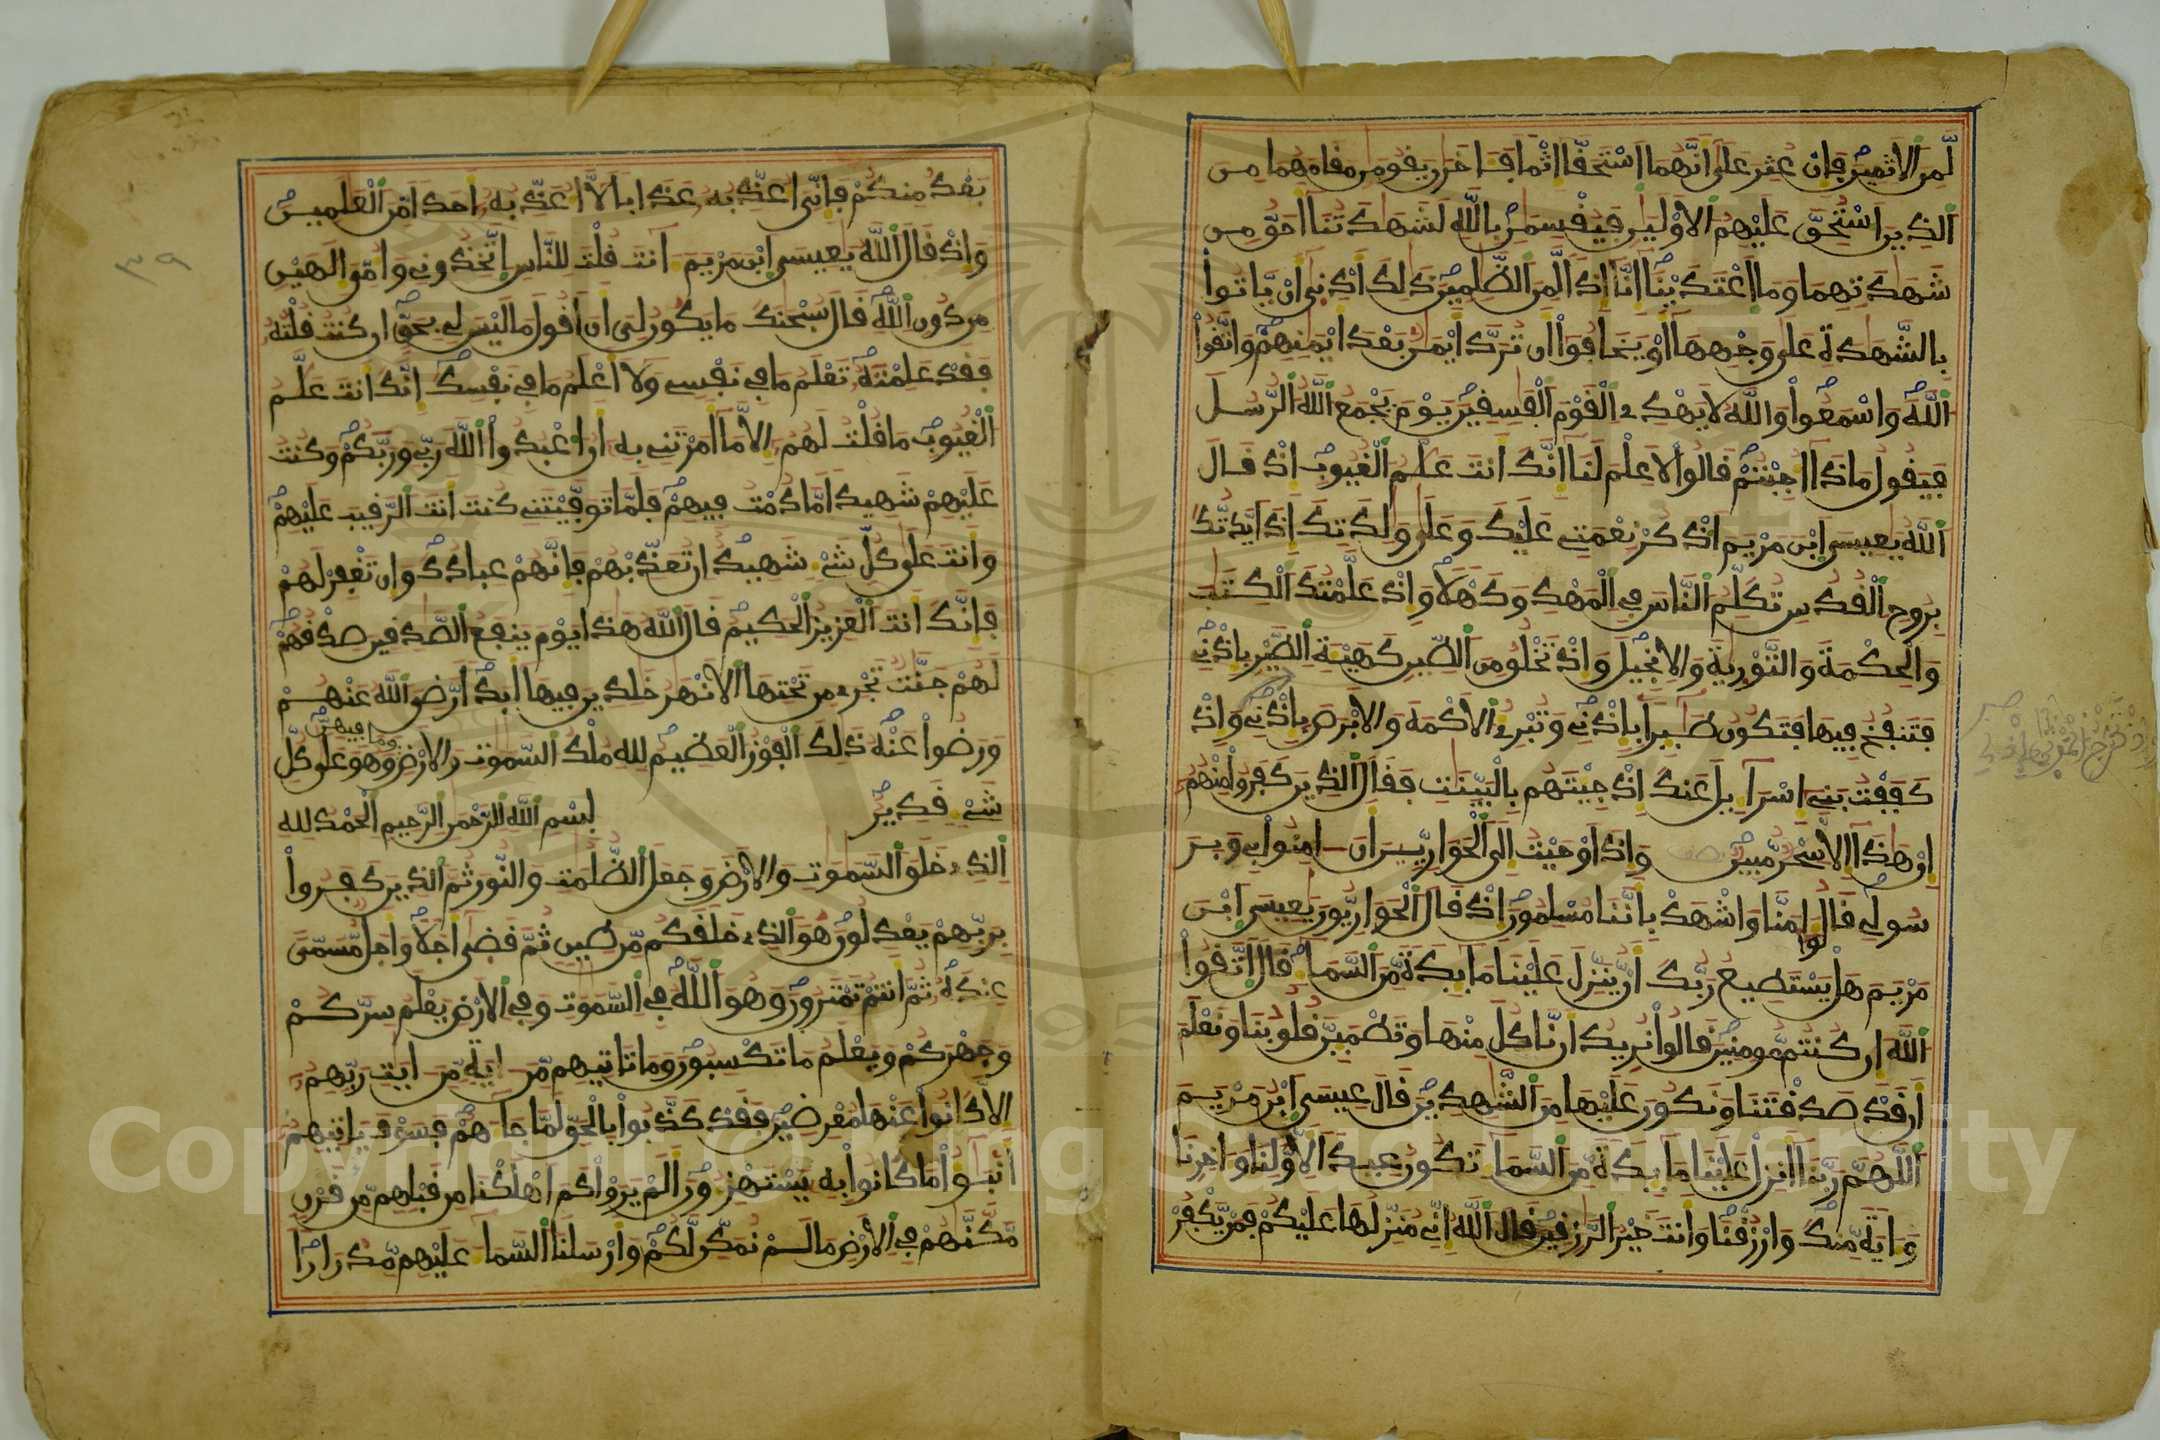 لمن الاثمين فإن عثر على انهما استحقا اثما فـاخرن يقومن مقامهما من
الذين استحق عليهم الاولين فيقسمن بالله لشهدتنا احق من
شهدتهما وما اعتدينا إنا إذا لمن الظلمين ذلك ادنى ان ياتوا
بالشهدة على وجهها أو يخافوا ان ترد أيمن بعد ايمنهم واتقوا
الله واسمعوا والله لا يهدي القوم الفسقين يوم يجمع الله الرسل
فيقول ماذا اجبتم قالوا لا علم لنا انك انت علم الغيوب اذ قال
الله يعيسى ابن مريم اذكر نعمتي عليك وعلى ولدتك اذ ايدتك
بروح القدس تكلم الناس في المهد وكهلا وإذ علمتك الكتب
والحكمة والتورية والانجيل واذ تخلق من الطين كهيئة الطير باذني
فتنفخ فيها فتكون طيرا بإذني وتبرئ الاكمه والابرص بإذني وإذ
كففت بني اسرآيل عنك إذ جيتهم بالبينت فقال الذين كفروا منهم
إن هذا الا سحر مبين وإذ اوحيت إلى الحوارين أن امنوا بي وبر
سولي قالوا امنا واشهد بأننا مسلمون إذ قال الحواريون يعيسى ابن
مريم هل يستطيع ربك أن ينزل علينا مايدة من السما قال اتقوا
الله إن كنتم مومنين قالوا نريد ان ناكل منها وتطمين قلوبنا ونعلم
أن قد صدقتنا ونكون عليها من الشهدين قال عيسى ابن مريم
اللهم ربنا أنزل علينا مايدة من السما تكون عيدا لاولنا واخرنا
واية منك وارزقنا وانت خير الرزقين قال الله إني منزلها عليكم فمن يكفر
بعد منكم فإني أعذبه عذابا لا اعذبه احدا من العلمين
وإذ قال الله يعيسى ابن مريم آنت قلت للناس اتخذوني وامي الهين
من دون الله قال سبحنك ما يكون لي ان أقول ما ليس لي بحق ان كنت قلته
فقد علمته تعلم ما في نفسي ولا اعلم ما في نفسك إنك انت علم
الغيوب ما قلت لهم إلا ما امرتني به أن اعبدوا الله ربي وربكم وكنت
عليهم شهيدا ما دمت فيهم فلما توفيتني كنت انت الرقيب عليهم
وانت على كل شيء شهيد ان تعذبهم فإنهم عبادك وان تغفر لهم
فإنك انت العزيز الحكيم قال الله هذا يوم ينفع الصدقين صدقهم
لهم جنت تجري من تحتها الانهر خلدين فيها ابدا رضي الله عنهم
ورضوا عنه ذلك الفوز العظيم لله ملك السموت والارض وما فيهن وهو على كل
شيء قدير بسم الله الرحمن الرحيم الحمد لله
الذي خلق السموت والارض وجعل الظلمت والنور ثم الذين كفروا
بربهم يعدلون هو الذي خلقكم من طين ثم قضى أجلا واجل مسمى
عنده ثم انتم تمترون وهو الله في السموت وفي الارض يعلم سركم
وجهركم ويعلم ما تكسبون وما تاتيهم من اية من ايت ربهم
الا كانوا عنها معرضين فقد كذبوا بالحق لما جا هم فسوف ياتيهم
أنبؤا ما كانوا به يستهزون الم يروا كم اهلكنا من قبلهم من قرن
مكنهم في الارض ما لم نمكن لكم وارسلنا السما عليهم مدرارا
٣٩
Copyright © King Saud University